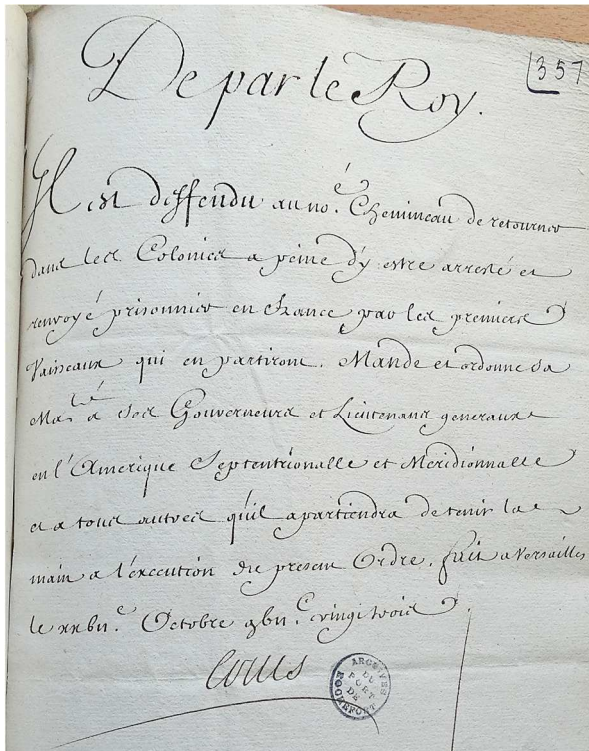 De par le Roy.
357
Il est deffendu au no.é Chemineau de retourner
dans les Colonies a peine d'y estre arresté et
renvoyé prisonnier en france par les premiers
Vaisseaux qui en partiront. Mande et ordonne sa
Ma.té a ses Gouverneurs et Lieutenans generaux
en l'Amerique Septentrionalle et Meridionnalle
et a tous autres qu'il apartiendra de tenir la
main a l'execution du present Ordre, fait a Versailles
le Octobre vingt trois
Louis
ARCHIVES
DU
PORT
DE
ROCHEFORT